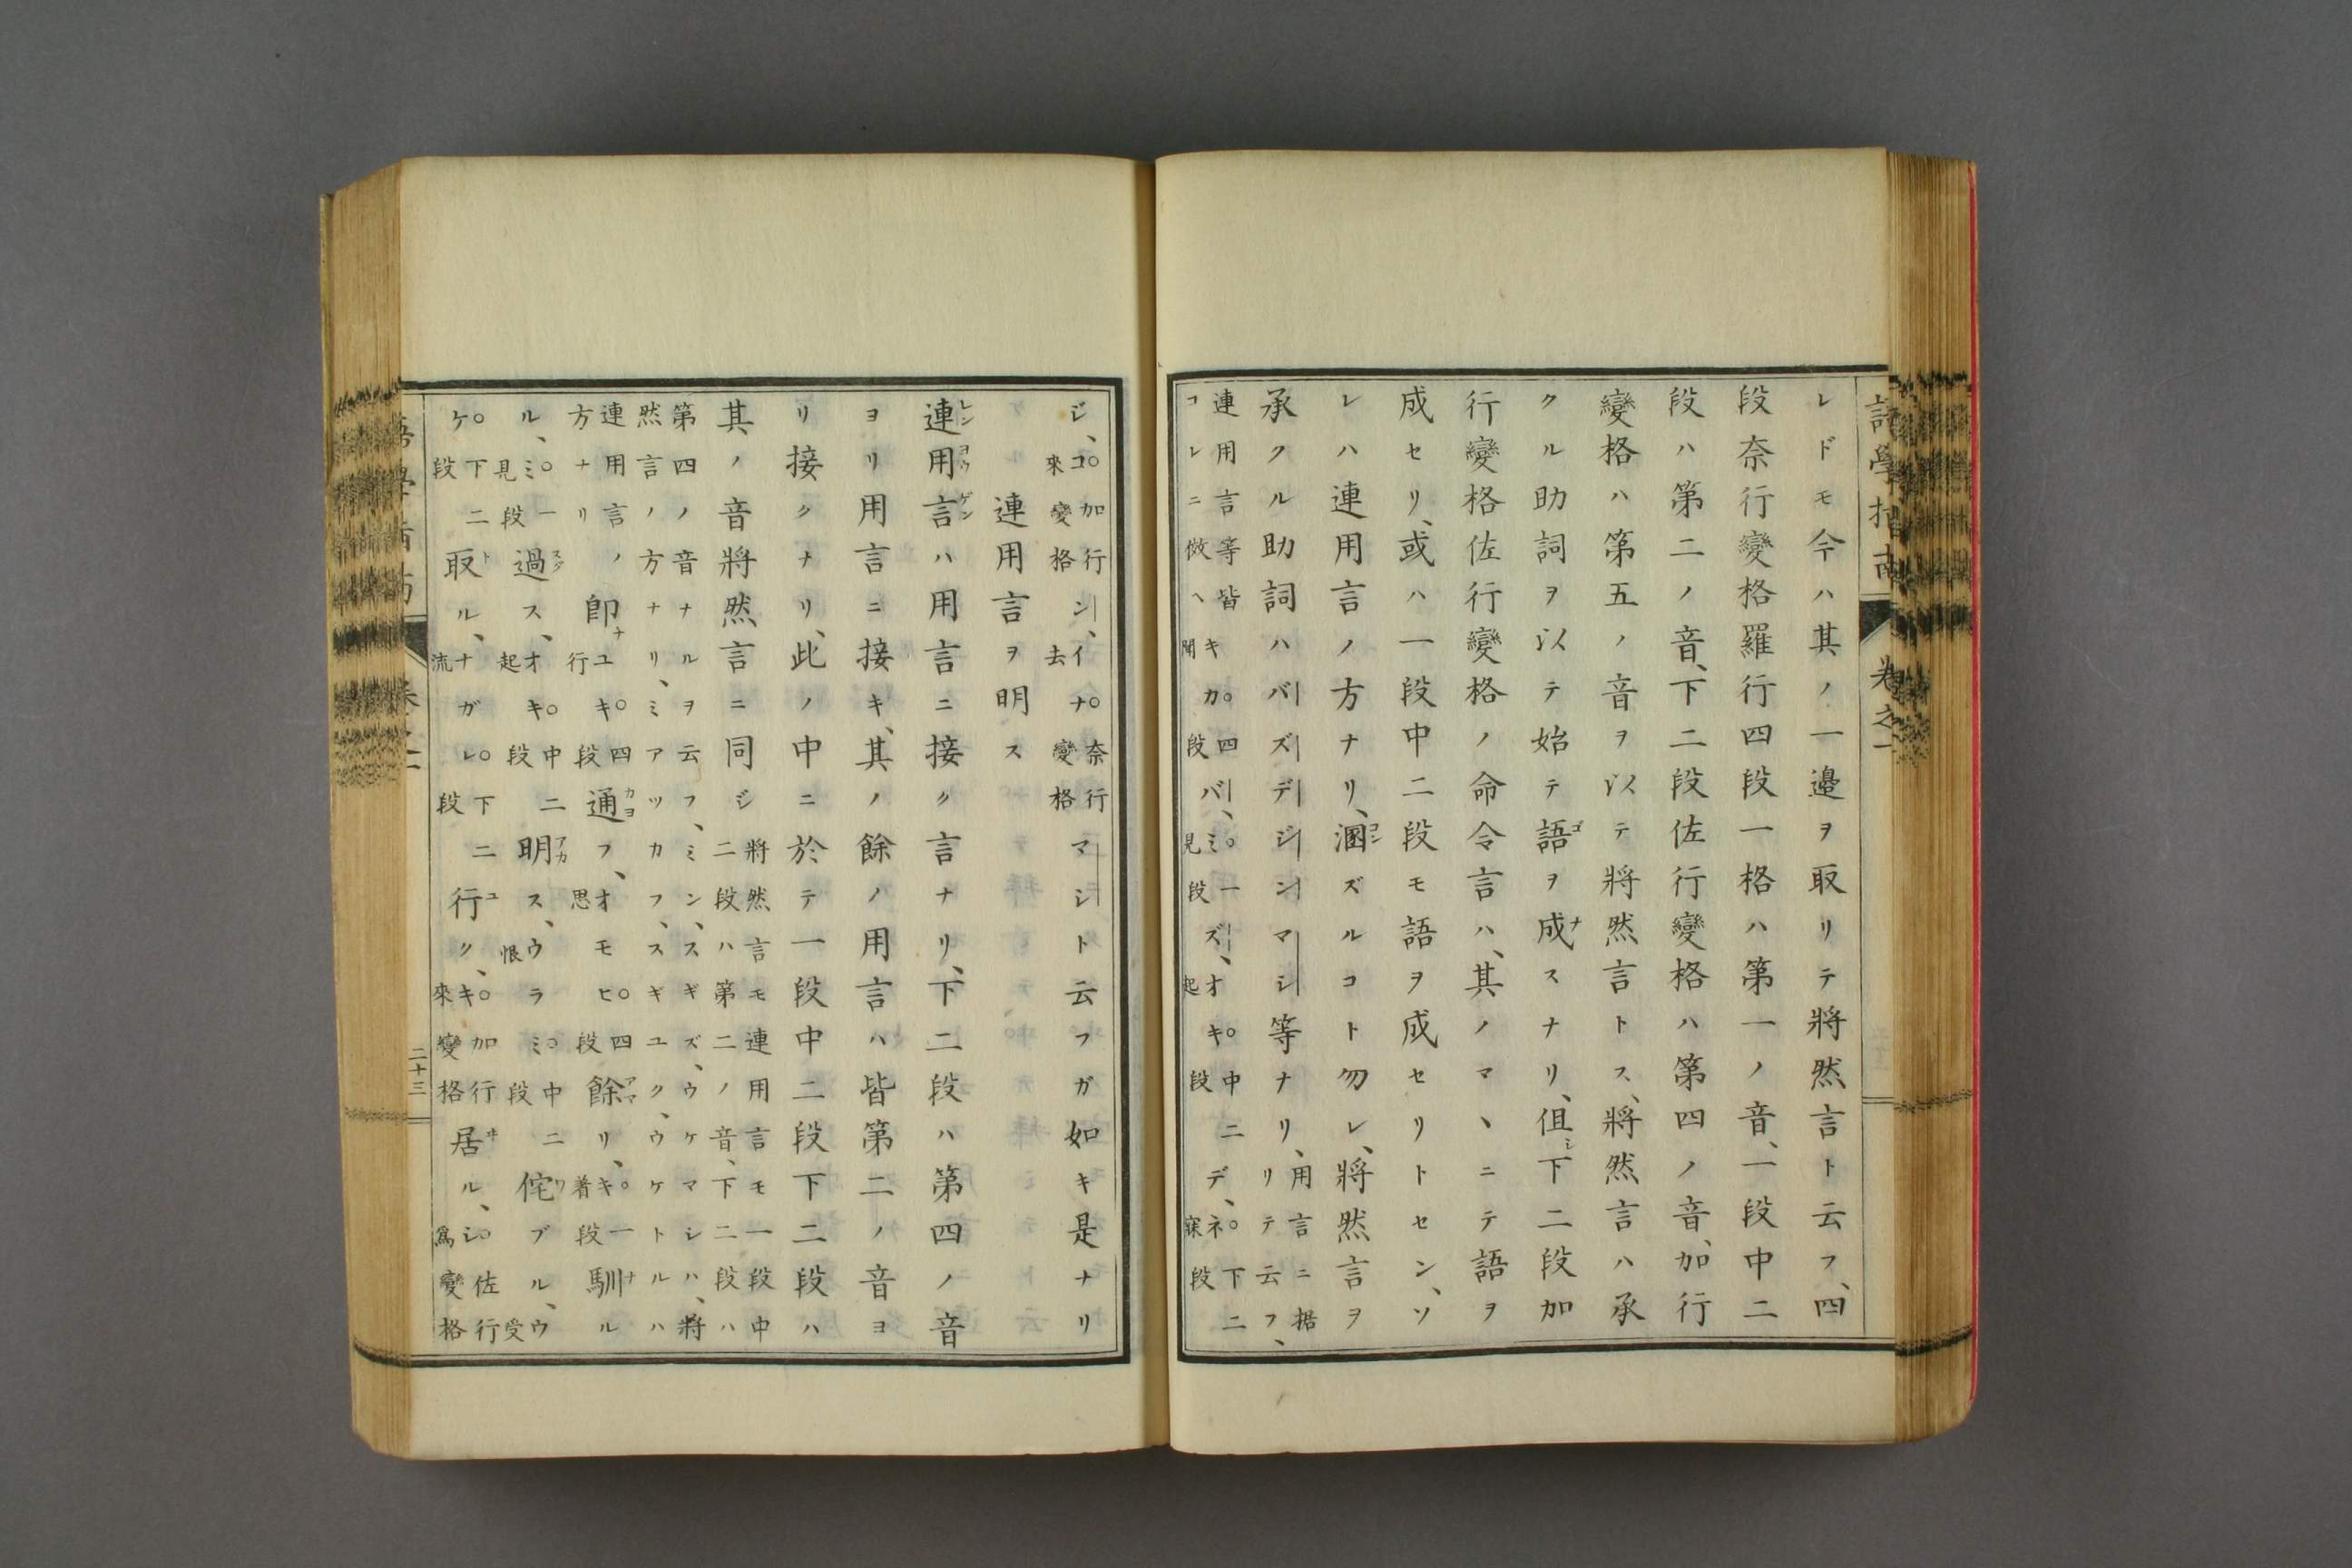 語學指南 卷之一
レドモ今ハ其ノ一邉ヲ取リテ將然言ト云フ、四
段奈行變格羅行四段一格ハ第一ノ音、一段中二
段ハ第二ノ音、下二段佐行變格ハ第四ノ音、加行
變格ハ第五ノ音ヲ以テ將然言トス、將然言ハ承
クル助詞ヲ以テ始テ語ヲ成スナリ、但シ下二段加
行變格佐行變格ノ命令言ハ、其ノマヽニテ語ヲ
成セリ、或ハ一段中二段モ語ヲ成セリトセン、ソ
レハ連用言ノ方ナリ、溷ズルコト勿レ、將然言ヲ
承クル助詞ハバズデジンマシ等ナリ、用言ニ据リテ云フ、
連用言等皆コレニ倣ヘ キカ聞四段バ、ミ見一段ズ、オキ起中二段デ、ネ寐下二
ジ、コ來加行變格ン、イナ去奈行變格マシト云フガ如キ是ナリ
連用言ヲ明ス
連用言ハ用言ニ接ク言ナリ、下二段ハ第四ノ音
ヨリ用言ニ接キ、其ノ餘ノ用言ハ皆第二ノ音ヨ
リ接クナリ、此ノ中ニ於テ一段中二段下二段ハ
其ノ音將然言ニ同ジ 將然言モ連用言モ一段中二段ハ第二ノ音、下二段ハ
第四ノ音ナルヲ云フ、ミン、スギズ、ウケマシハ、將然言ノ方ナリ、ミアツカフ、スギユク、ウケトルハ
連用言ノ方ナリ 卽ナユキ行四段通フ、オモヒ思四段餘リ、キ着一段馴ル
ル、ミ見一段過ス、オキ起中二段明ス、ウラミ恨中二段侘ブル、ウ受
ケ下二段取ル、ナガレ流下二段行ク、キ來加行變格居ル、シ爲佐行變格
二十三